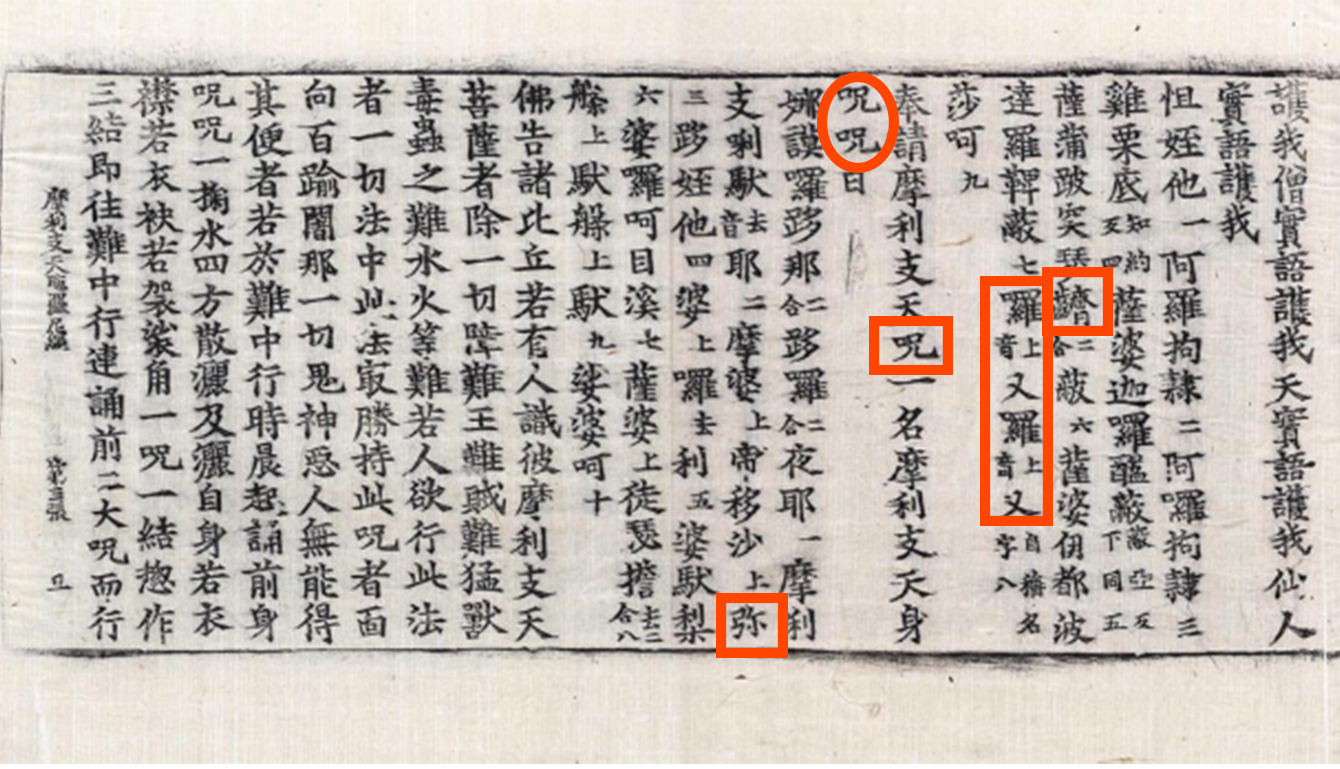 護我僧實語護我天實語護我仙人
實語護我
怛姪他一阿羅拘隸二阿囉拘隸三
雞栗底知約反四薩婆迦囉醯蔽蔽亞反下同五
薩蒲跛突瑟二合蔽六薩婆伊都波
達羅鞞蔽七羅上音又羅上音又自稱名字八
莎呵九
奉請摩利支天呪一名摩利支天身
呪呪曰
娜謨囉跢那二合跢羅二合夜耶一摩利
支唎馱去音耶二摩婆上帝移沙上弥
三跢姪他四婆上囉去利五婆馱梨
六婆囉呵目溪七薩婆上徒瑟擔去二合八
槃上馱槃上馱九娑婆呵十
佛告諸比丘若有人識彼摩利支天
菩薩者除一切障難王難賊難猛獸
毒蟲之難水火等難若人欲行此法
者一切法中此法冣勝持此呪者面
向百踰闍那一切鬼神惡人無能得
其便者若於難中行時晨起誦前身
呪呪一掬水四方散灑及灑自身若衣
襟若衣袂若袈裟角一呪一結惣作
三結即往難中行連誦前二大呪而行
摩利支天陁羅尼經 第三張